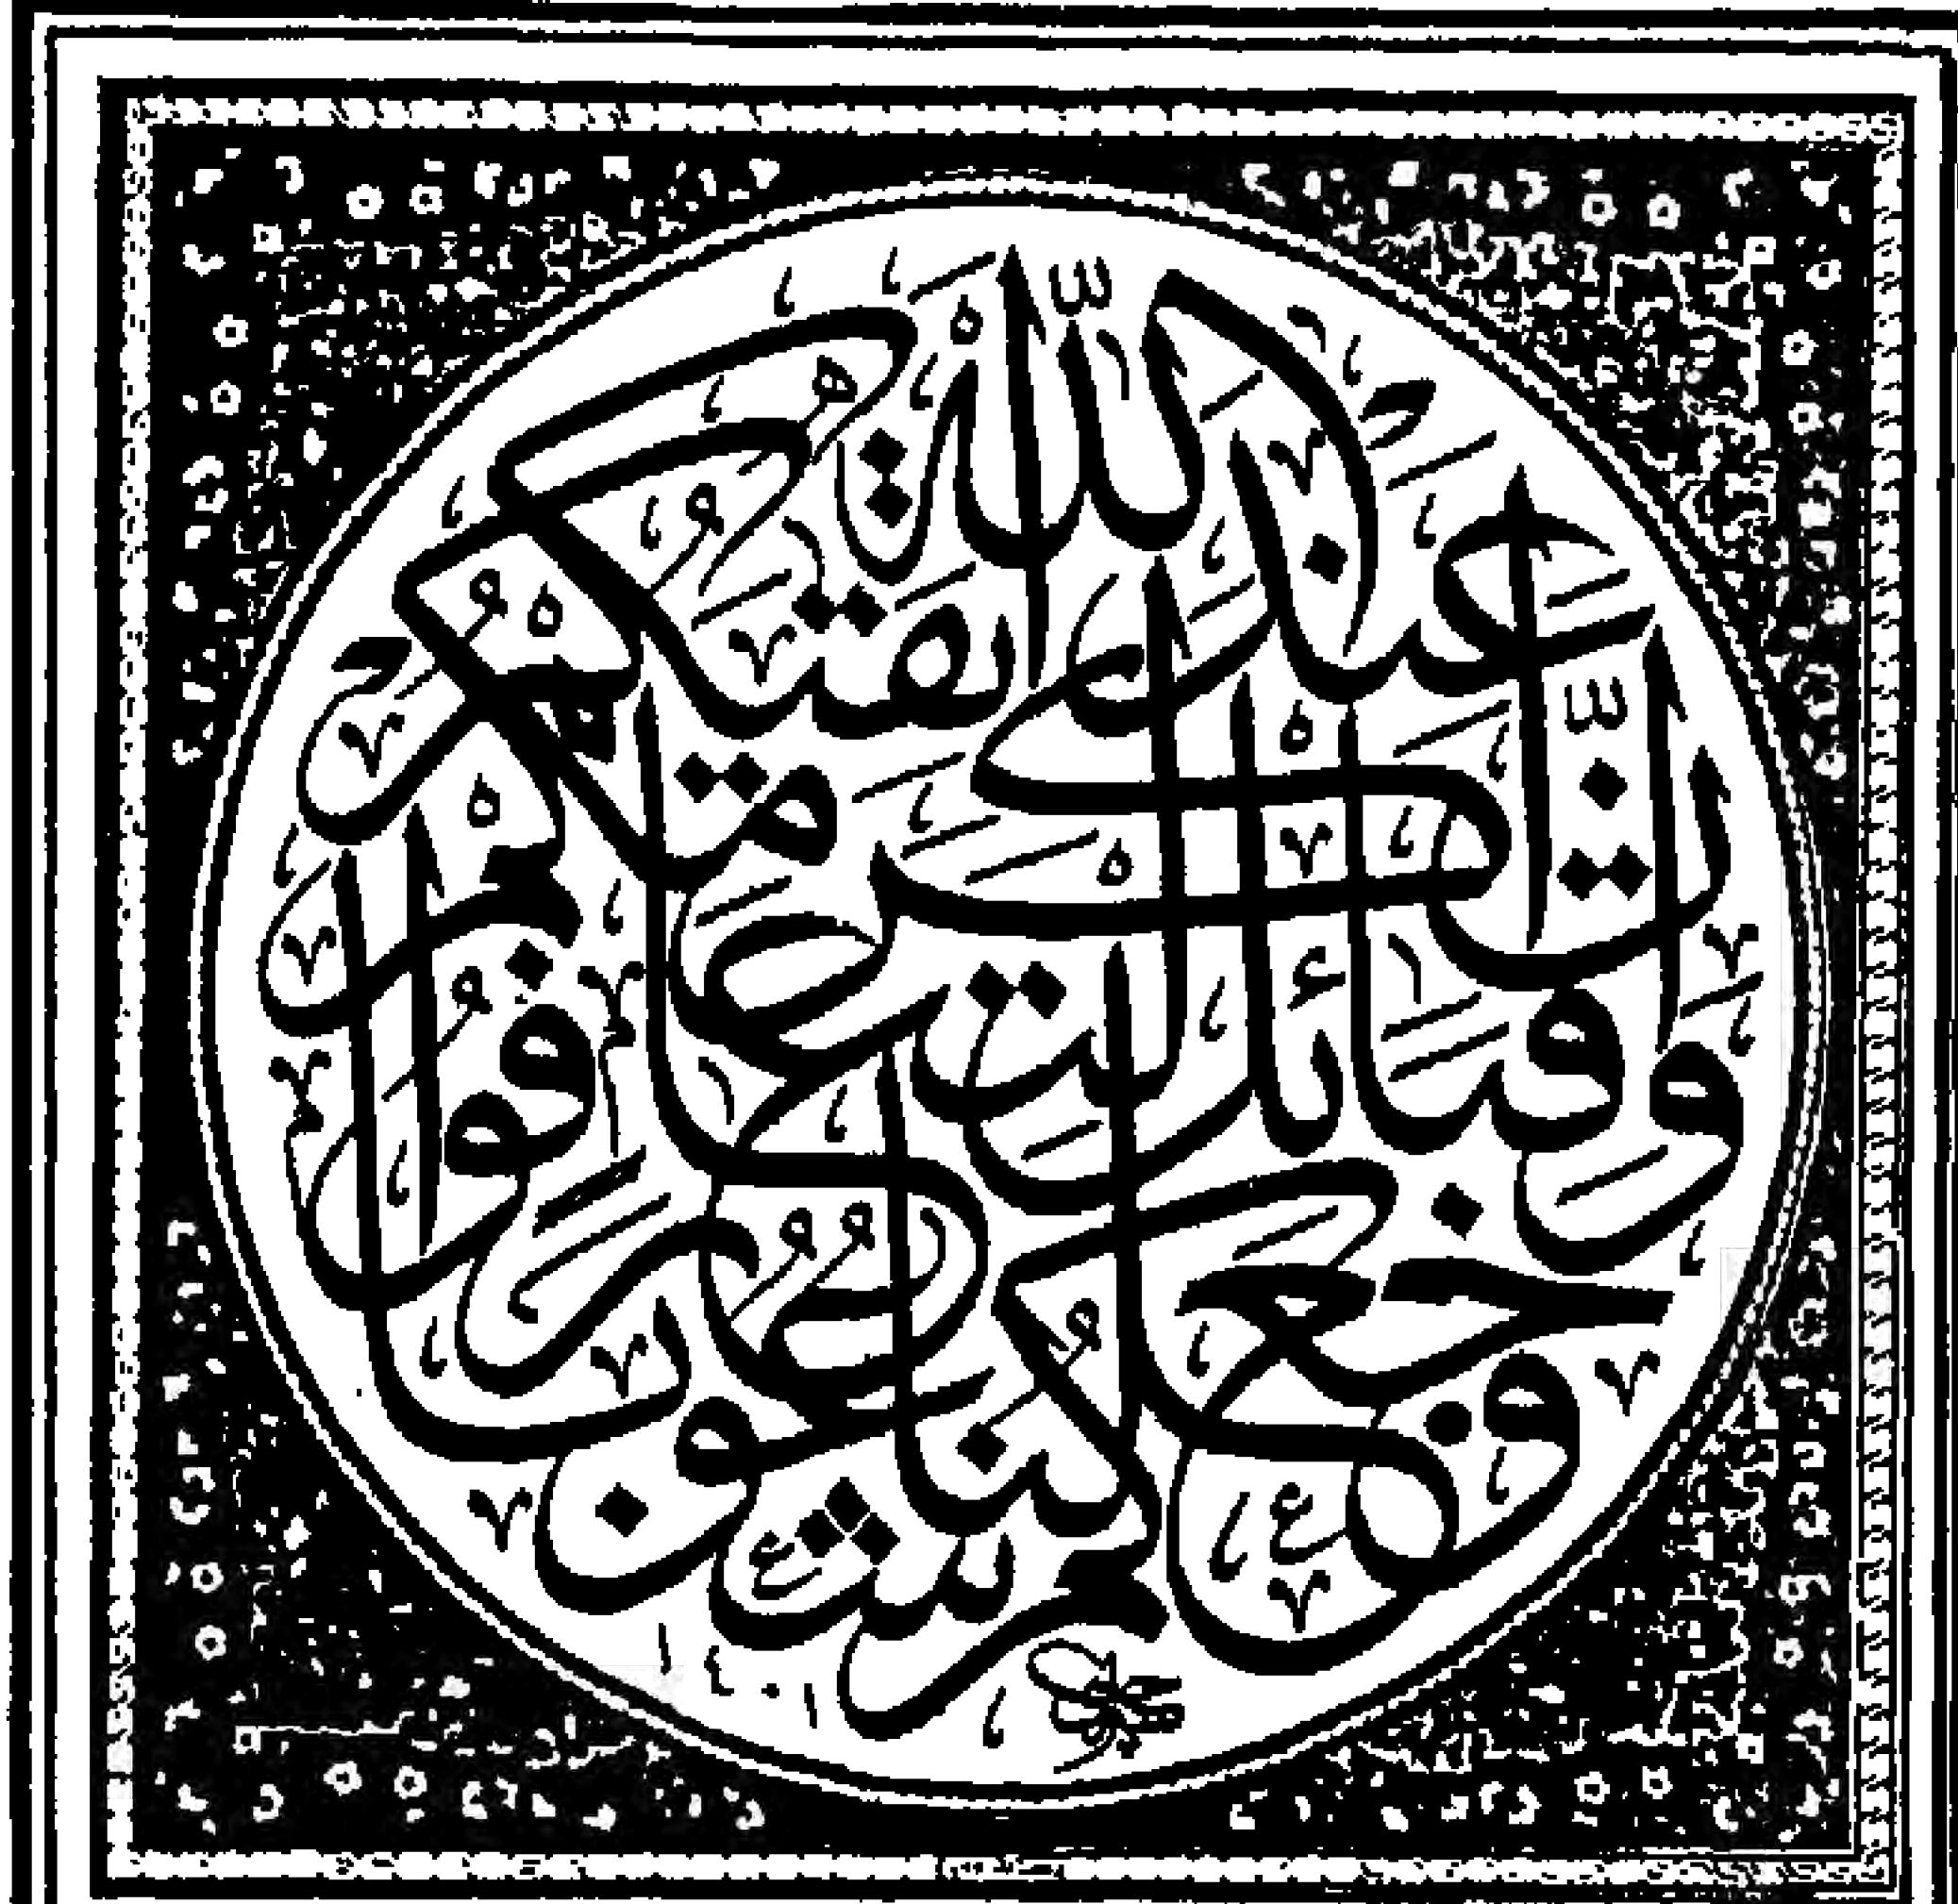 وَجَعَلْنٰكُمْ شُعُوبًا
وَقَبَائِلَ لِتَعَارَفُوا
إِنَّ أَكْرَمَكُمْ
عِنْدَ اللّٰهِ أَتْقٰيكُمْ
١٤٠١